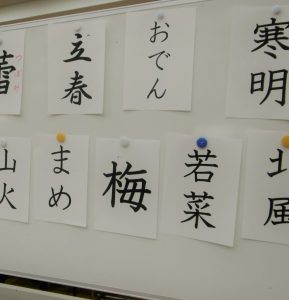 寒明
おでん
立春
蕾
つぼみ
北風
若菜
梅
まめ
山火